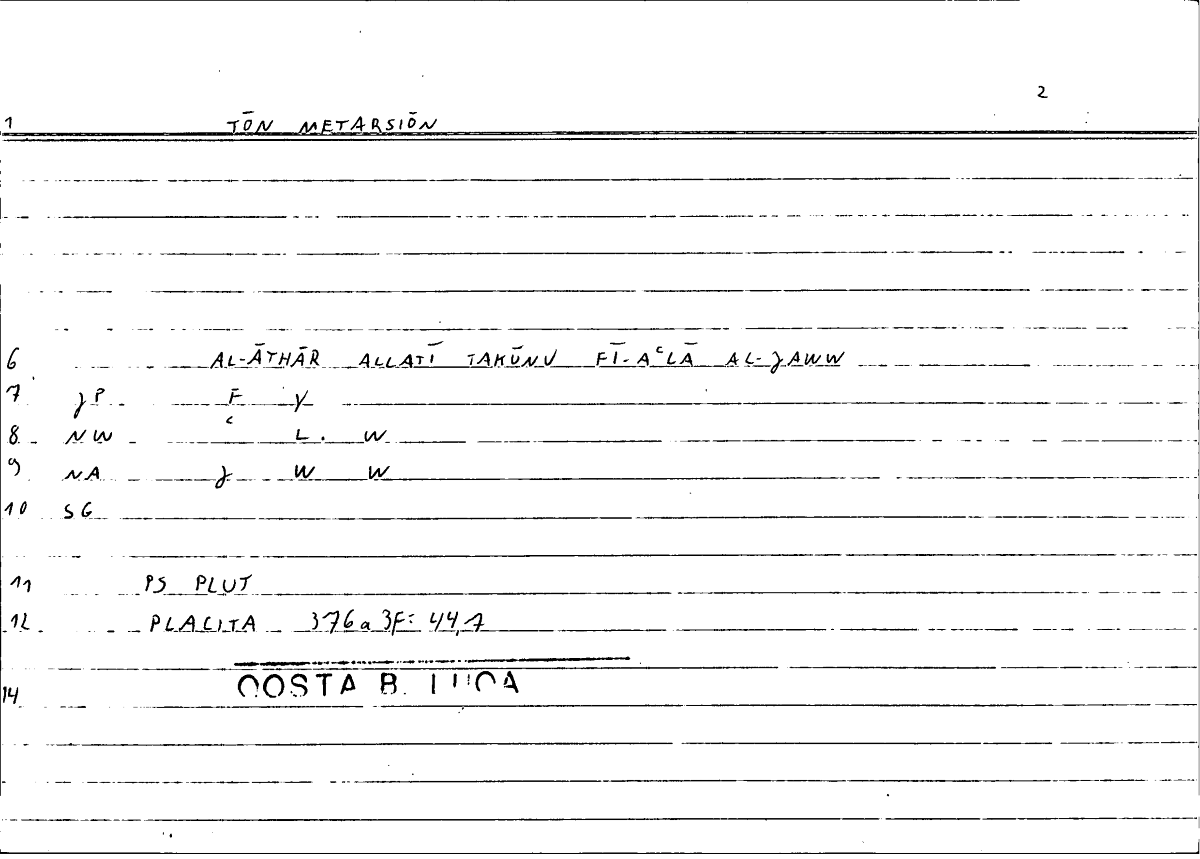 2
1 TŌN METARSIŌN
6 AL-ĀTHĀR ALLATĪ TAKŪNU FĪ-AʿLĀ AL-JAWW
7 JP F Y
8 NW ʿ L. W
9 NA J W W
10 SG
11 PS PLUT
12 PLACITA 376a3F: 44,7
14 QOSTA B. LUQA